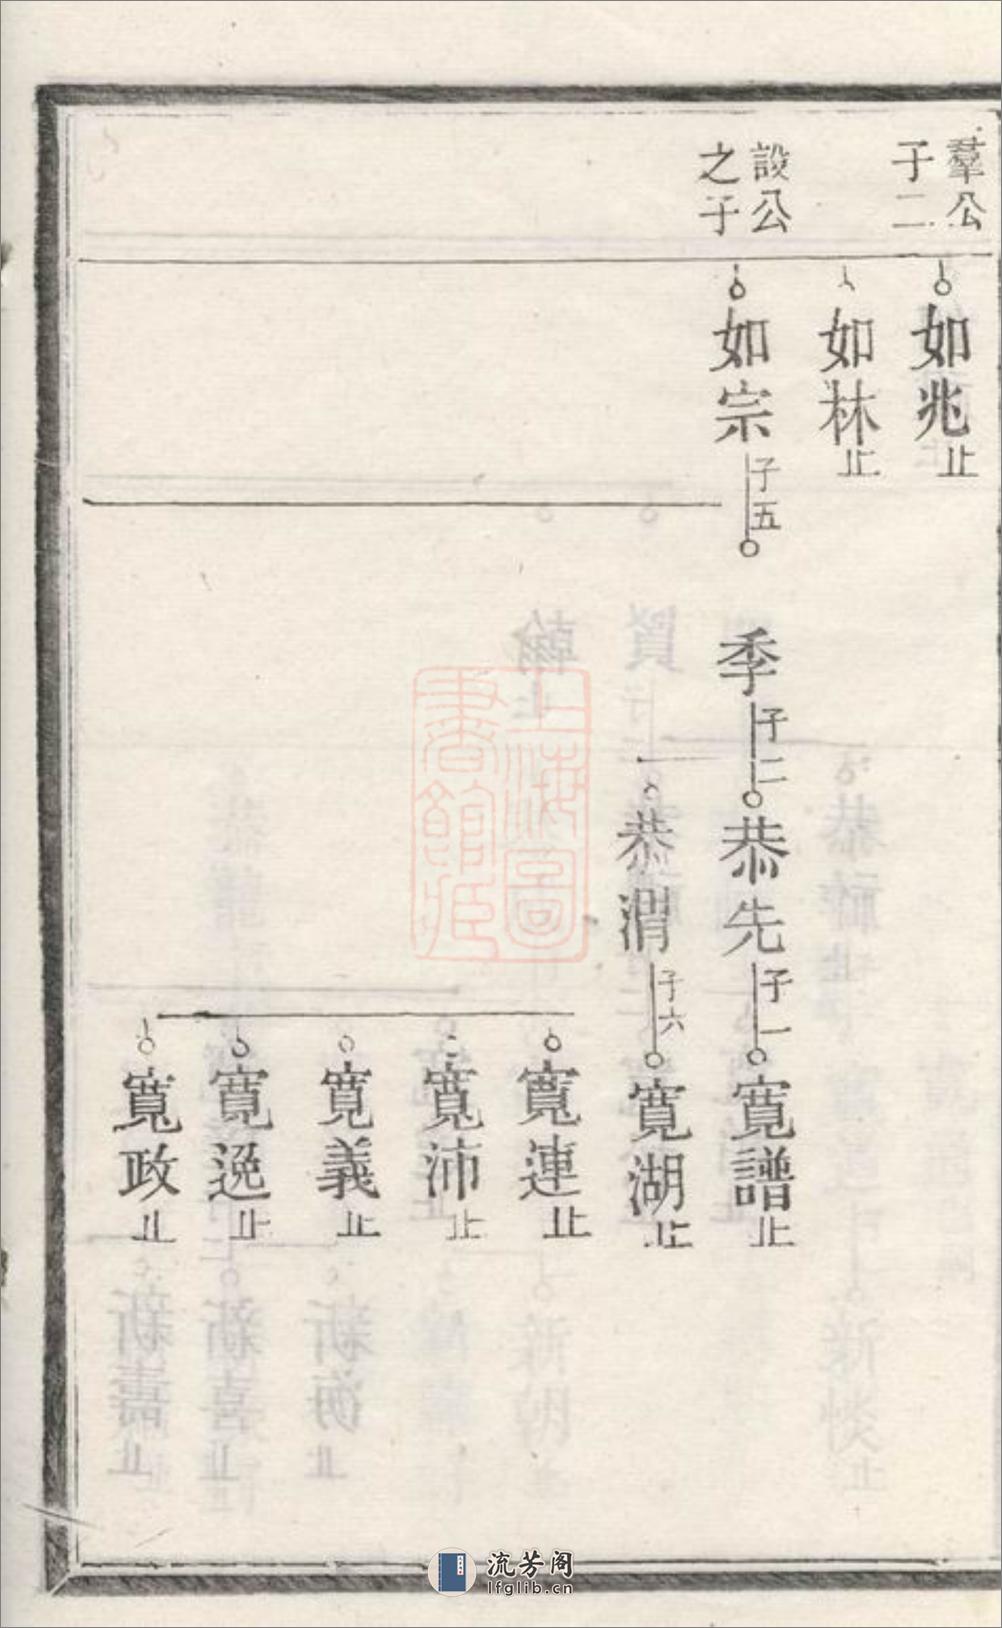 羣公
子二
如兆止
如林止
設公
之子
如宗
子五
季
子二
恭先
子一
寬譜止
恭渭
子六
寬湖止
寬連止
寬沛止
寬義止
寬逸止
寬政止
上海圖
書館藏
流芳阁
lfglib.cn